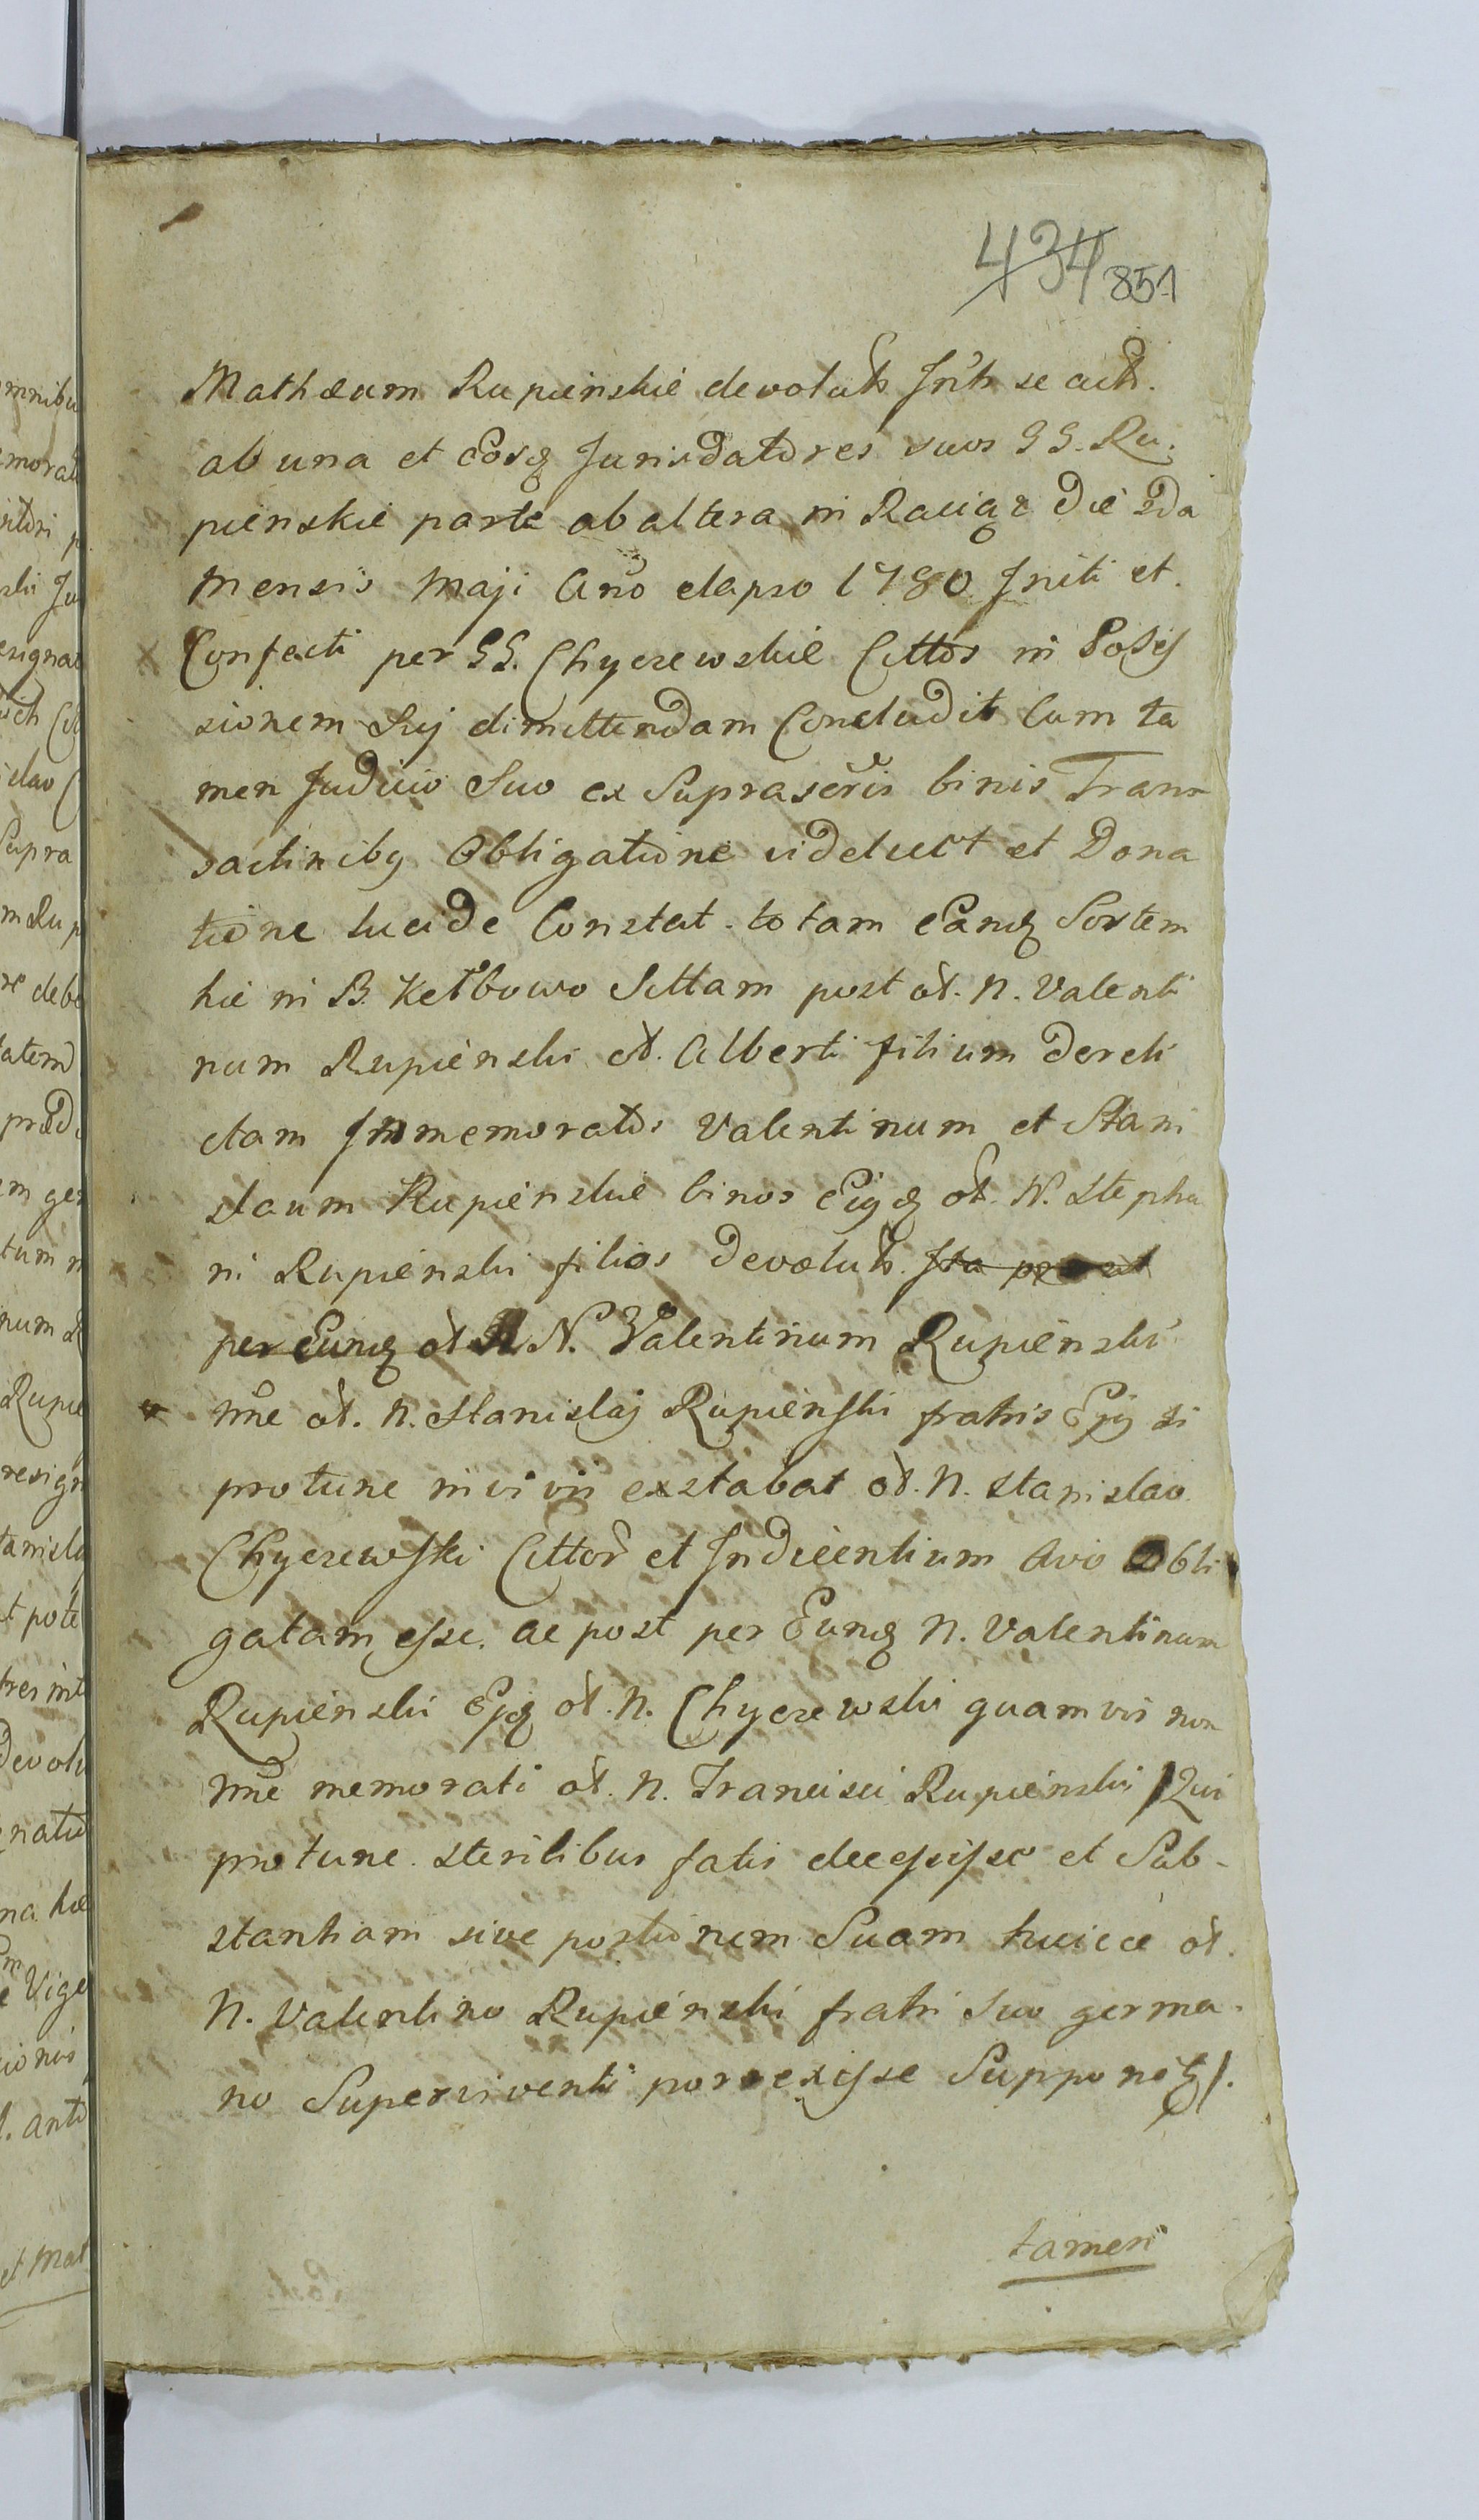 434 851
Mathæum Rupienskie devolutis Inter se actis.
ab una et Eosq Jurisdatores suos GG. Ru:
pienskie parte ab altera in Raciąz Die 2da
Mensis Maji Anō elapso 1780 Initi et.
Confecti per GG. Chyczewskie Cittōs in Posses
sionem Sui dimittendam Concludit Cum ta
men Judicio Suo ex Suprascrīs binis Trans
sactiniby Obligatione videlicet et Dona
tione lucide Constat. totam Eanq Sortem
hic in B. Kettbowo Sittam post ol. N. Valenti
num Rupienski ol. Alberti filium dereli
ctam Immemoratos Valentinum et Stani
slaum Rupienskie binos Ejq ol. N. Stepha
ni Rupienski filios devolutis. Ita
per Eunq ol N. Valentinum Rupienski
nne ol. N. Stanislaj Rupienski fratris Ejq si
protunc in vivis exstabat ol. N. Stanislao
Chyczewski Cittōr et Indicentium Avo Obli
gatam esse. ac post per Eunq N. Valentinum
Rupienski Ejq ol. N. Chyczewski quamvis non
nne memorati ol. N. Francisci Rupienski /Qui
protunc sterilibus fatis decessisse et Sub-
stantiam sive portionem Suam huicce ol.
N. Valentino Rupienski fratri Suo germa.
no Superviventi porrexisse Supponitq/.
tamen